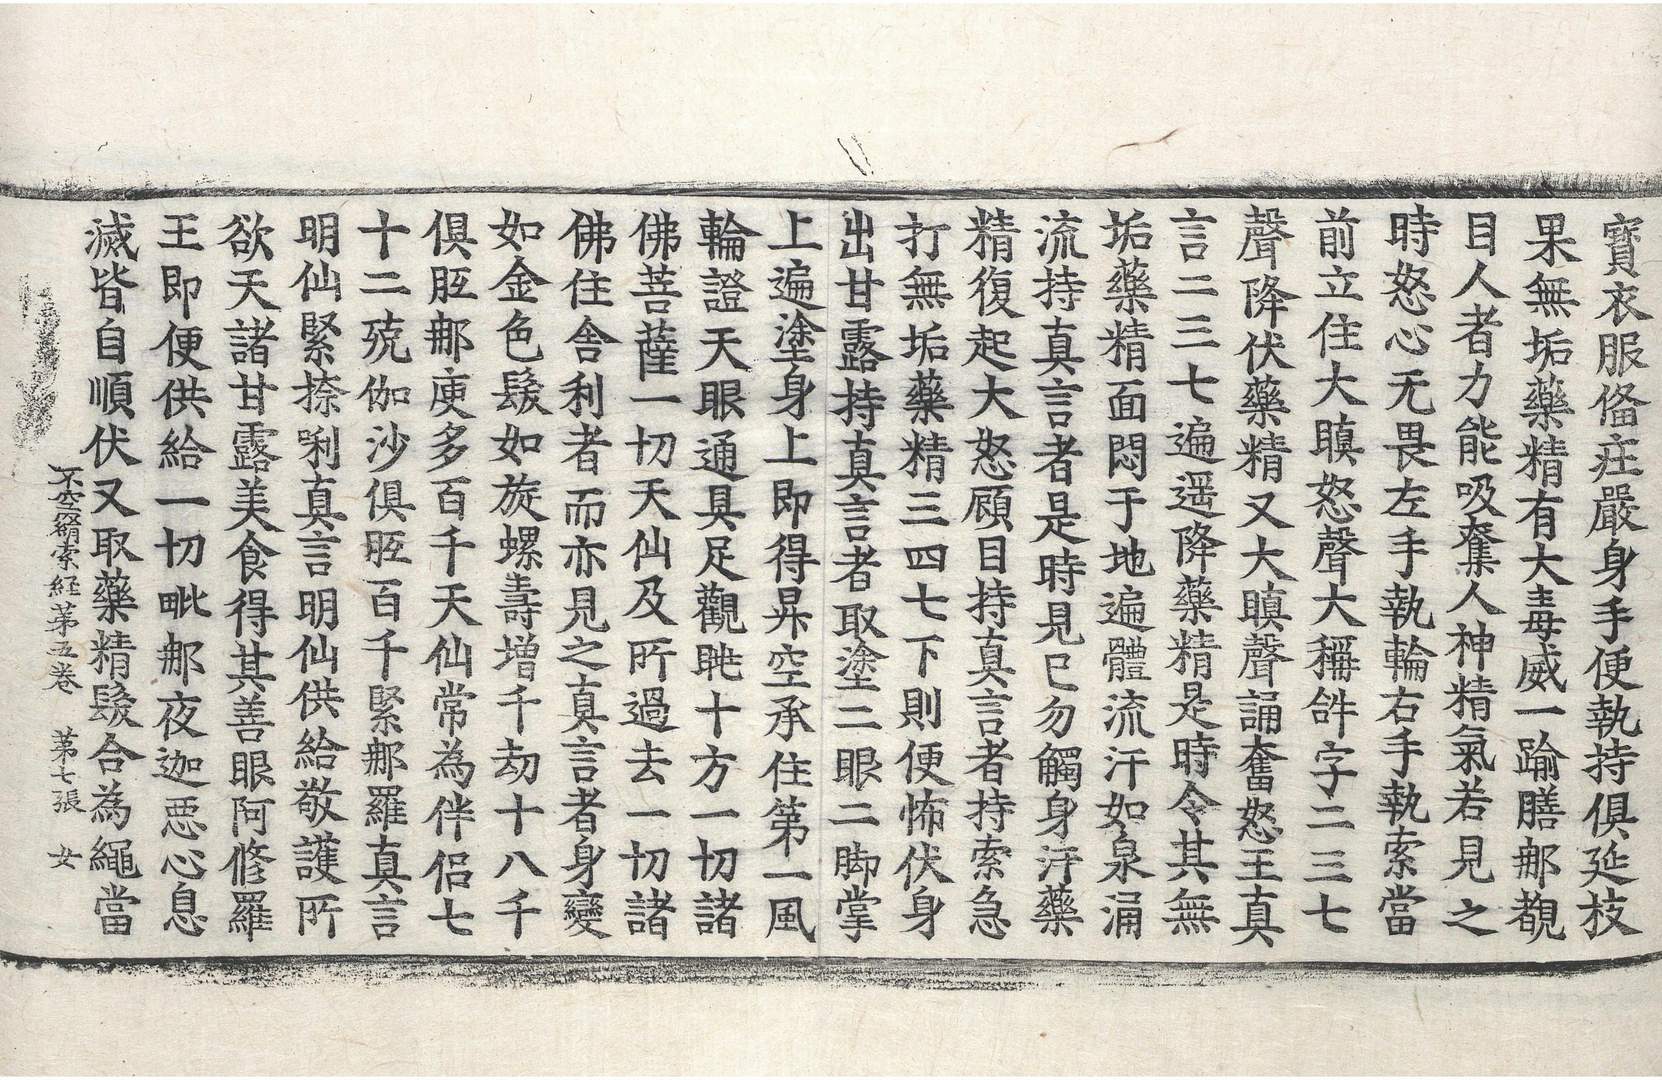 寶衣服俻莊嚴身手便執持俱延枝
果無垢藥精有大毒威一踰膳那覩
目人者力能吸奪人神精氣若見之
時怒心无畏左手執輪右手執索當
前立住大瞋怒聲大稱𤙖字二三七
聲降伏藥精又大瞋聲誦奮怒王真
言二三七遍遥降藥精是時令其無
垢藥精面悶于地遍體流汗如泉涌
流持真言者是時見已勿觸身汗藥
精復起大怒顧目持真言者持索急
打無垢藥精三四七下則便怖伏身
出甘露持真言者取塗二眼二脚掌
上遍塗身上即得昇空承住第一風
輪證天眼通具足觀眺十方一切諸
佛菩薩一切天仙及所過去一切諸
佛住舍利者而亦見之真言者身變
如金色髮如旋螺壽增千劫十八千
俱胝那庾多百千天仙常為伴侣七
十二殑伽沙俱胝百千緊那羅真言
明仙緊捺唎真言明仙供給敬護所
欲天諸甘露美食得其善眼阿修羅
王即便供給一切毗那夜迦惡心息
滅皆自順伏又取藥精髮合為繩當
不空羂索経苐五卷　苐七張　女